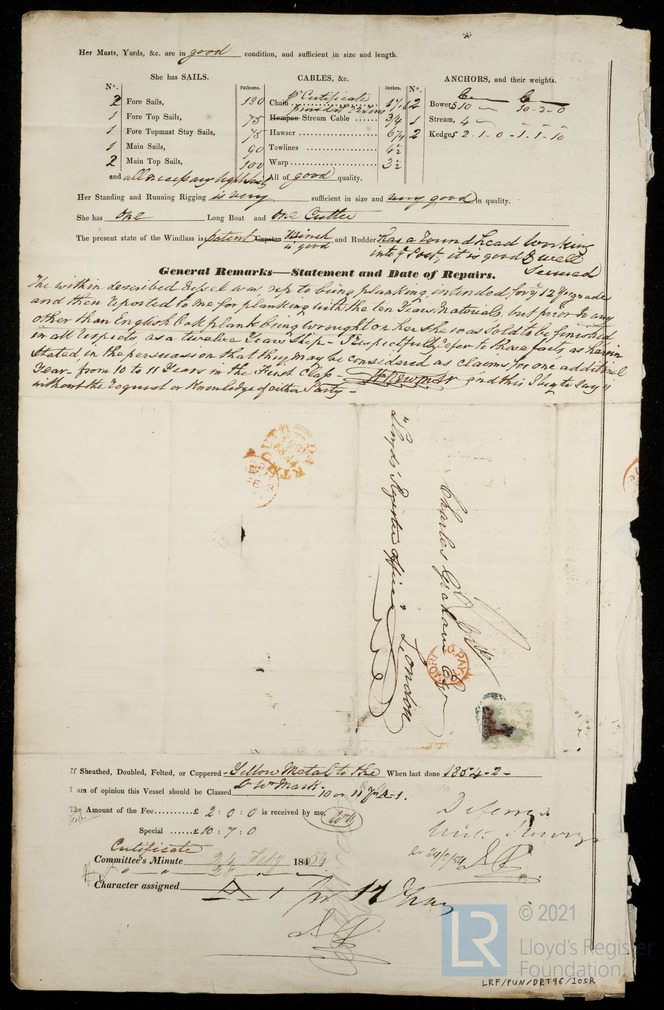 Her Masts, Yards, &c. are in good condition, and sufficient in size and length.
She has SAILS.
CABLES, &c.
ANCHORS, and their weights.
N°.
Fathoms.
Inches.
N°.
2 Fore Sails,
1 Fore Top Sails,
1 Fore Topmast Stay Sails,
1 Main Sails,
2 Main Top Sails,
and all necessary light Sails
Chain pr Certificate 130
Hempen Stream Cable 75 3/4
Hawser 75 6/4
Towlines 90 4½
Warp 100 3½
All of good quality.
2 Bowers 10 10-2-0
1 Stream, 4
2 Kedges 2-1-0-1-1-10
Her Standing and Running Rigging is very sufficient in size and very good in quality.
She has one Long Boat and one Cutter
The present state of the Windlass is patent Capstan Winch is good and Rudder has a round head working
into ye Post, it is good & well
Secured
General Remarks—Statement and Date of Repairs.
The within described Vessel was up to being planking intended for ye 12 Yr grade
and then reported to me for planking with the ten Years Materials but prior to any
other than English Oak plank being wrought on her she was Sold to be finished
in all respects, as a twelve Years Ship - I respectfully refer to those facts as herein
Stated in the persuasion that they may be considered as claims for one additional
Year - from 10 to 11 Years in the First Class - and this I beg to say is
without the request or Knowledge of either Party -
Charles Graham Esqr
Lloyds' Register Office
London
If Sheathed, Doubled, Felted, or Coppered Yellow Metal to the When last done 1854-2-
Wr Mark.
I am of opinion this Vessel should be Classed 10 or 11 Yrs A 1.
The Amount of the Fee......... £ 2 : 0 : 0 is received by me.
Special ......... £ 10 : 7 : 0
Certificate
Committee's Minute 24 Feby 1854
Character assigned A 1 for 11 Years
© 2021
LR
Lloyd's Register
Foundation
LRF/PUN/DRT96/205R